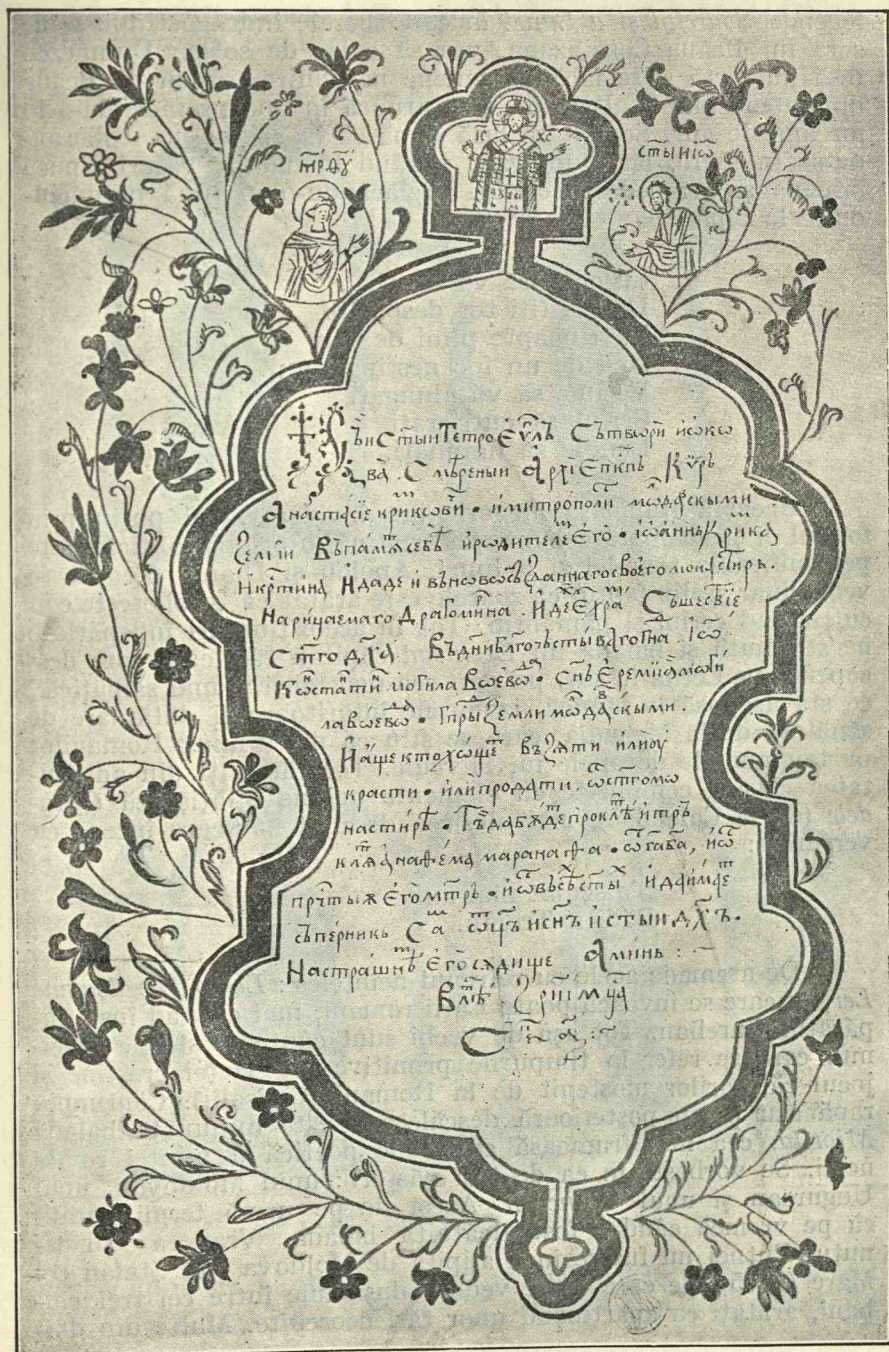 І҃С Х҃С
М҃Р Ѳ҃У
СТ҃ЫИ ІѠ
Съи Ст҃ыи Тетроєѵ҃лъ Сътвори и ѡкѡ
ва Смѣреныи Архіепк҃пь Кѵръ
Анастасіє Криковӥ • и митрополи мѡдаскыми
Земли Въ памѧ себѣ и родителє Его • Іѡаннь Крика
и Крⷭтина И дадє и въ новосъзданнаго своєго монастирѣ
нарицаемаго Драгомирна . Идє Е хра Съшєсвїє
Ст҃го дх҃а Въ дн҃и бл҃гочьстываго гн҃а Іѡ
Кѡстатин могила воєво • Сн҃ь Єремїа моги
ла воєво • Гп҃ры Земли мѡдаскыми .
И аще кто хоще възѧти или оу
красти • или продати . ѿ ст҃го мо
настирѣ • Тъ да бѫде проклѣ и трь
клѧ анаѳєма маранаѳа • ѿ га ба , и ѿ
прчⷭтыѫ Его мт҃рь • и ѿ въсѣ ст҃ы и да има є
съпєрникь Са ѿц҃ъ и сн҃ъ и ст҃ыи дх҃ъ .
На страшнѣ Его сѫдищє Аминь : ~